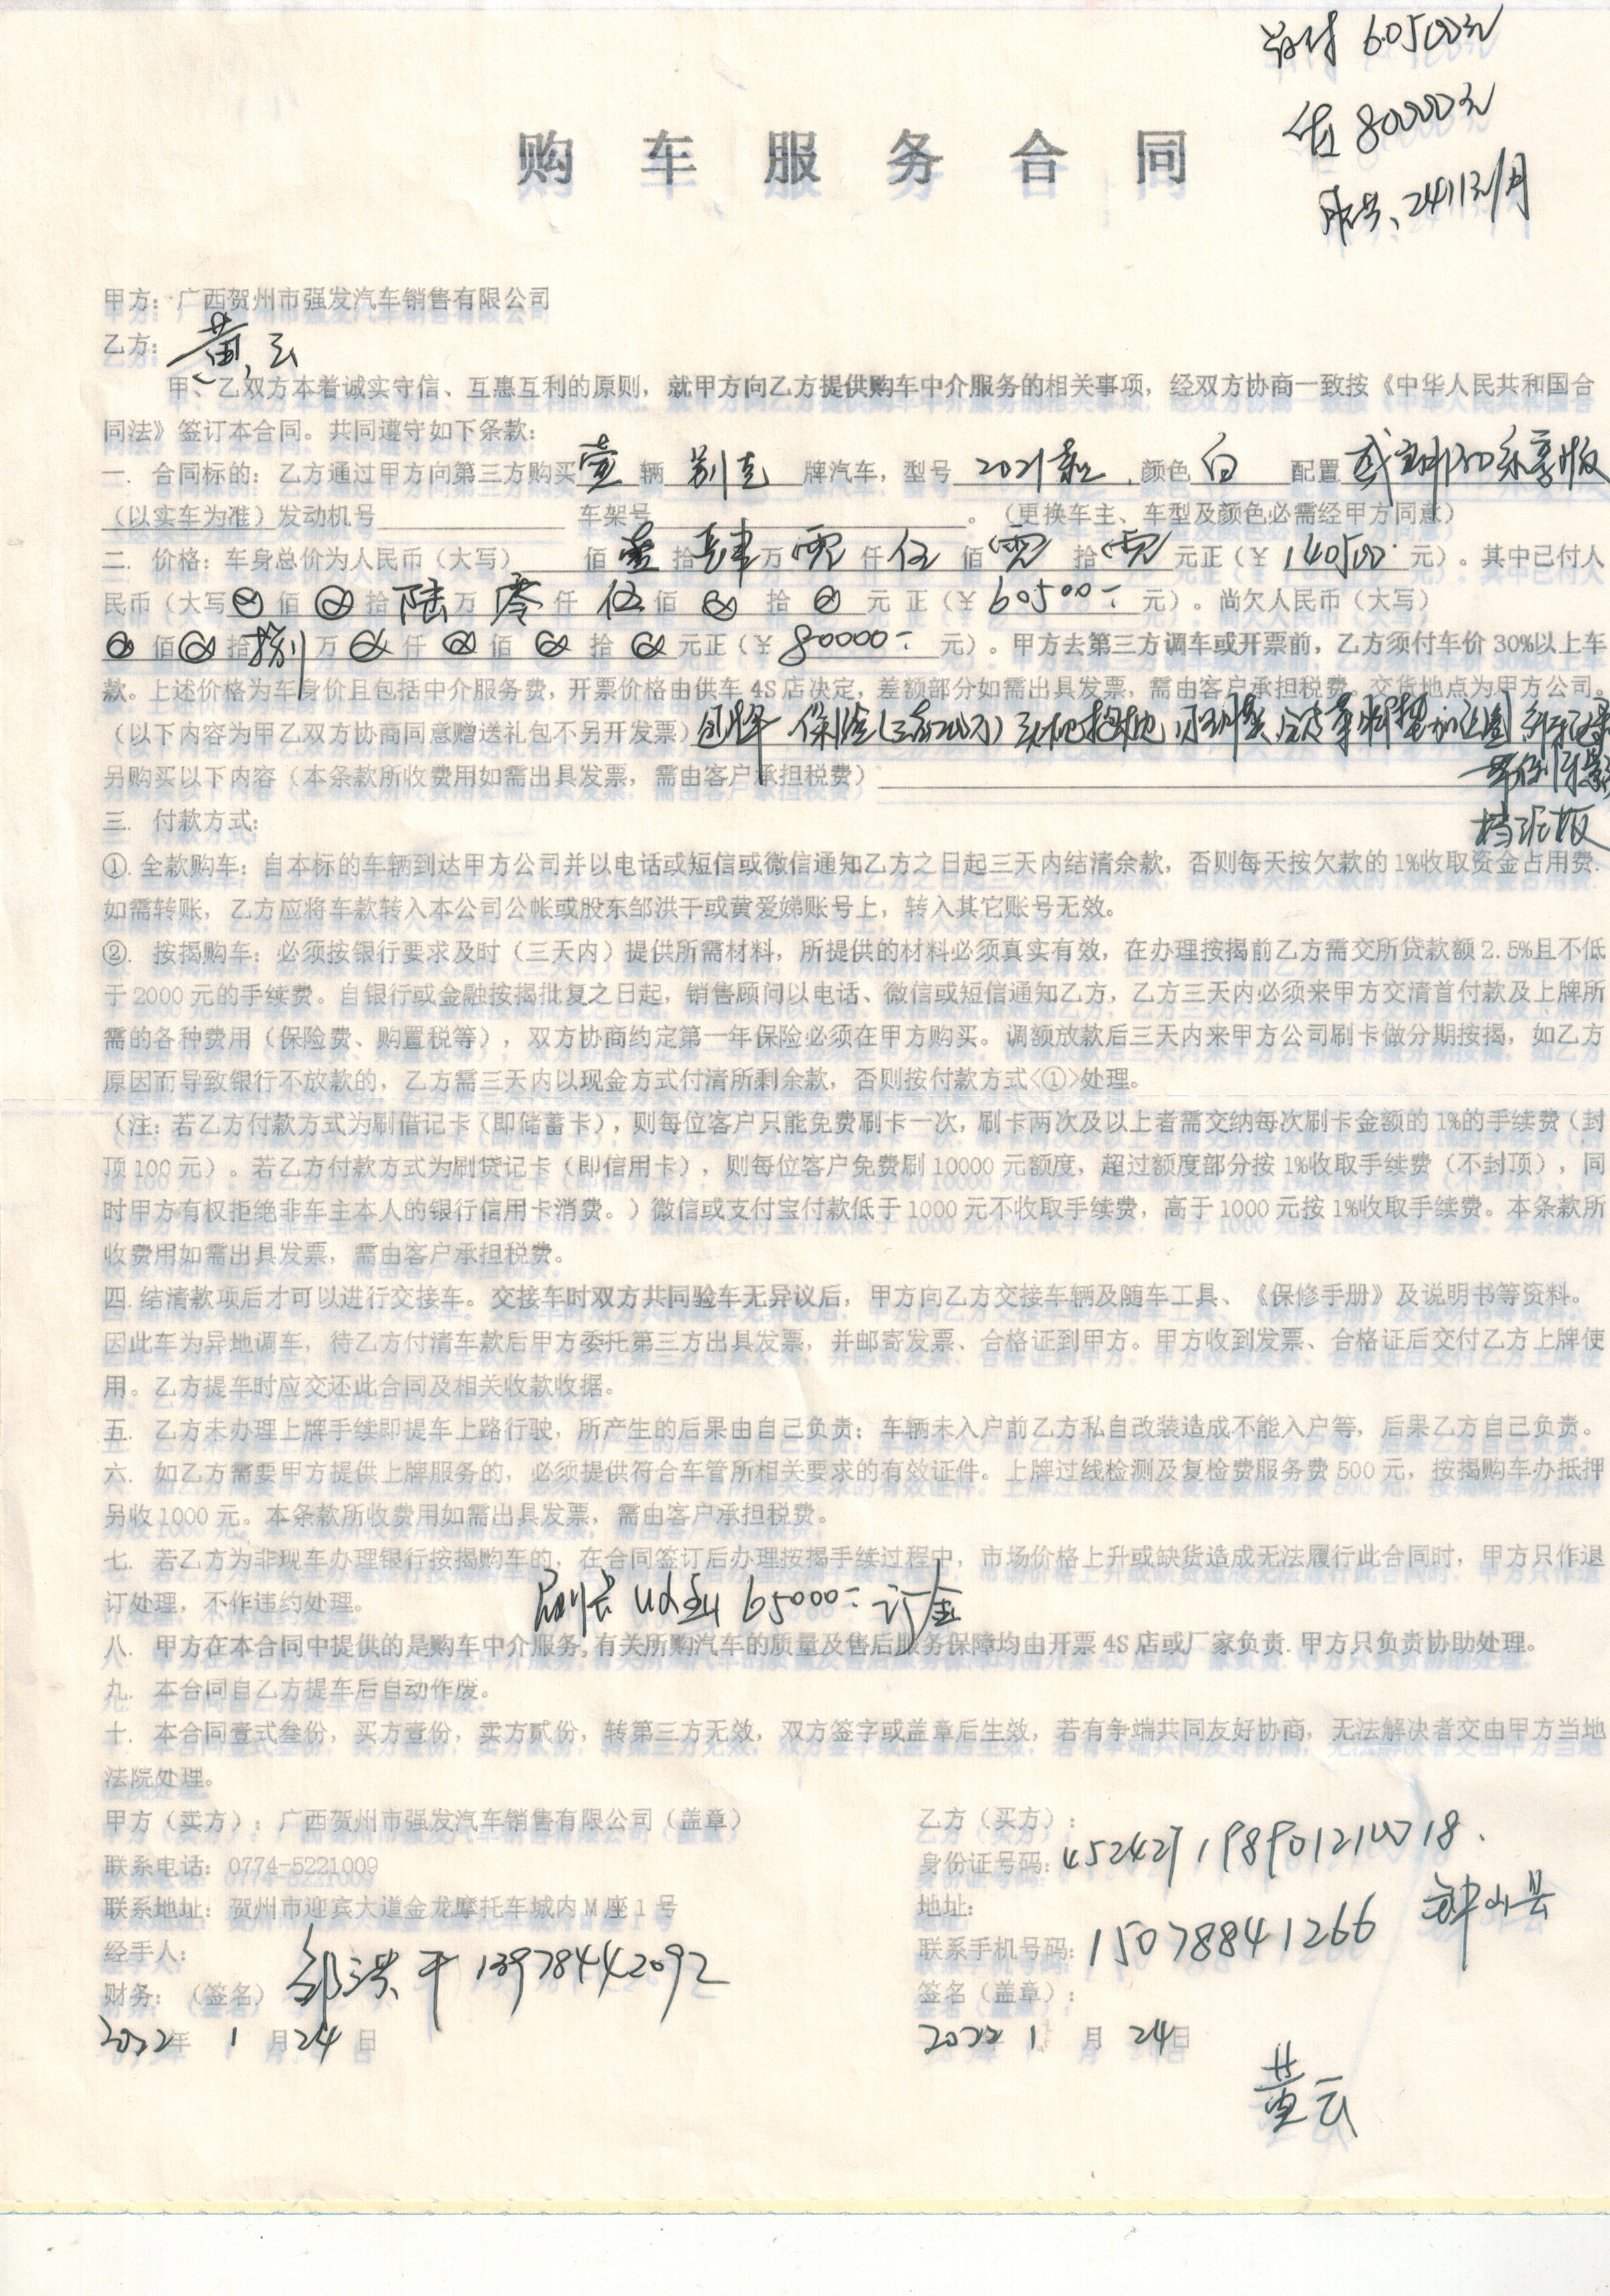 首付 60500元
贷 80000元
月供、2411元/月
购车服务合同
甲方：广西贺州市强发汽车销售有限公司
乙方：黄云
甲、乙双方本着诚实守信、互惠互利的原则，就甲方向乙方提供购车中介服务的相关事项，经双方协商一致按《中华人民共和国合
同法》签订本合同。共同遵守如下条款：
一. 合同标的：乙方通过甲方向第三方购买 壹 辆 别克 牌汽车，型号 2021款 颜色 白 配置
（以实车为准）发动机号 车架号 。（更换车主、车型及颜色必需经甲方同意）
二. 价格：车身总价为人民币（大写） 佰 壹 拾 肆 万 零 仟 伍 佰 零 拾 零 元正（¥ 140500 元）。其中已付人
民币（大写 ⊗ 佰 ⊗ 拾 陆 万 零 仟 伍 佰 ⊗ 拾 ⊗ 元 正（¥ 60500 元）。尚欠人民币（大写）
⊗ 佰 ⊗ 拾 捌 万 ⊗ 仟 ⊗ 佰 ⊗ 拾 ⊗ 元正（¥ 80000 元）。甲方去第三方调车或开票前，乙方须付车价 30%以上车
款。上述价格为车身价且包括中介服务费，开票价格由供车 4S 店决定，差额部分如需出具发票，需由客户承担税费。交货地点为甲方公司。
（以下内容为甲乙双方协商同意赠送礼包不另开发票）包牌 保险（三者200万）
另购买以下内容（本条款所收费用如需出具发票，需由客户承担税费）
挡泥板
三. 付款方式：
①. 全款购车：自本标的车辆到达甲方公司并以电话或短信或微信通知乙方之日起三天内结清余款，否则每天按欠款的 1%收取资金占用费.
如需转账，乙方应将车款转入本公司公帐或股东邹洪干或黄爱娣账号上，转入其它账号无效。
②. 按揭购车：必须按银行要求及时（三天内）提供所需材料，所提供的材料必须真实有效，在办理按揭前乙方需交所贷款额 2.5%且不低
于 2000 元的手续费。自银行或金融按揭批复之日起，销售顾问以电话、微信或短信通知乙方，乙方三天内必须来甲方交清首付款及上牌所
需的各种费用（保险费、购置税等），双方协商约定第一年保险必须在甲方购买。调额放款后三天内来甲方公司刷卡做分期按揭，如乙方
原因而导致银行不放款的，乙方需三天内以现金方式付清所剩余款，否则按付款方式<①>处理。
（注：若乙方付款方式为刷借记卡（即储蓄卡），则每位客户只能免费刷卡一次，刷卡两次及以上者需交纳每次刷卡金额的 1%的手续费（封
顶 100 元）。若乙方付款方式为刷贷记卡（即信用卡），则每位客户免费刷 10000 元额度，超过额度部分按 1%收取手续费（不封顶），同
时甲方有权拒绝非车主本人的银行信用卡消费。）微信或支付宝付款低于 1000 元不收取手续费，高于 1000 元按 1%收取手续费。本条款所
收费用如需出具发票，需由客户承担税费。
四. 结清款项后才可以进行交接车。交接车时双方共同验车无异议后，甲方向乙方交接车辆及随车工具、《保修手册》及说明书等资料。
因此车为异地调车，待乙方付清车款后甲方委托第三方出具发票，并邮寄发票、合格证到甲方。甲方收到发票、合格证后交付乙方上牌使
用。乙方提车时应交还此合同及相关收款收据。
五. 乙方未办理上牌手续即提车上路行驶，所产生的后果由自己负责；车辆未入户前乙方私自改装造成不能入户等，后果乙方自己负责。
六. 如乙方需要甲方提供上牌服务的，必须提供符合车管所相关要求的有效证件。上牌过线检测及复检费服务费 500 元，按揭购车办抵押
另收 1000 元。本条款所收费用如需出具发票，需由客户承担税费。
七. 若乙方为非现车办理银行按揭购车的，在合同签订后办理按揭手续过程中，市场价格上升或缺货造成无法履行此合同时，甲方只作退
订处理，不作违约处理。
刷卡 收到 65000 订金
八. 甲方在本合同中提供的是购车中介服务,有关所购汽车的质量及售后服务保障均由开票 4S 店或厂家负责.甲方只负责协助处理。
九. 本合同自乙方提车后自动作废。
十. 本合同壹式叁份，买方壹份，卖方贰份，转第三方无效，双方签字或盖章后生效，若有争端共同友好协商，无法解决者交由甲方当地
法院处理。
甲方（卖方）：广西贺州市强发汽车销售有限公司（盖章）
联系电话：0774-5221009
联系地址：贺州市迎宾大道金龙摩托车城内 M 座 1 号
经手人：
财务：（签名） 邹洪干 13978442092
2022 年 1 月 24 日
乙方（买方）：
身份证号码：452427198901210018
地址： 钟山县
联系手机号码：15078841266
签名（盖章）：
2022 1 月 24 日
黄云